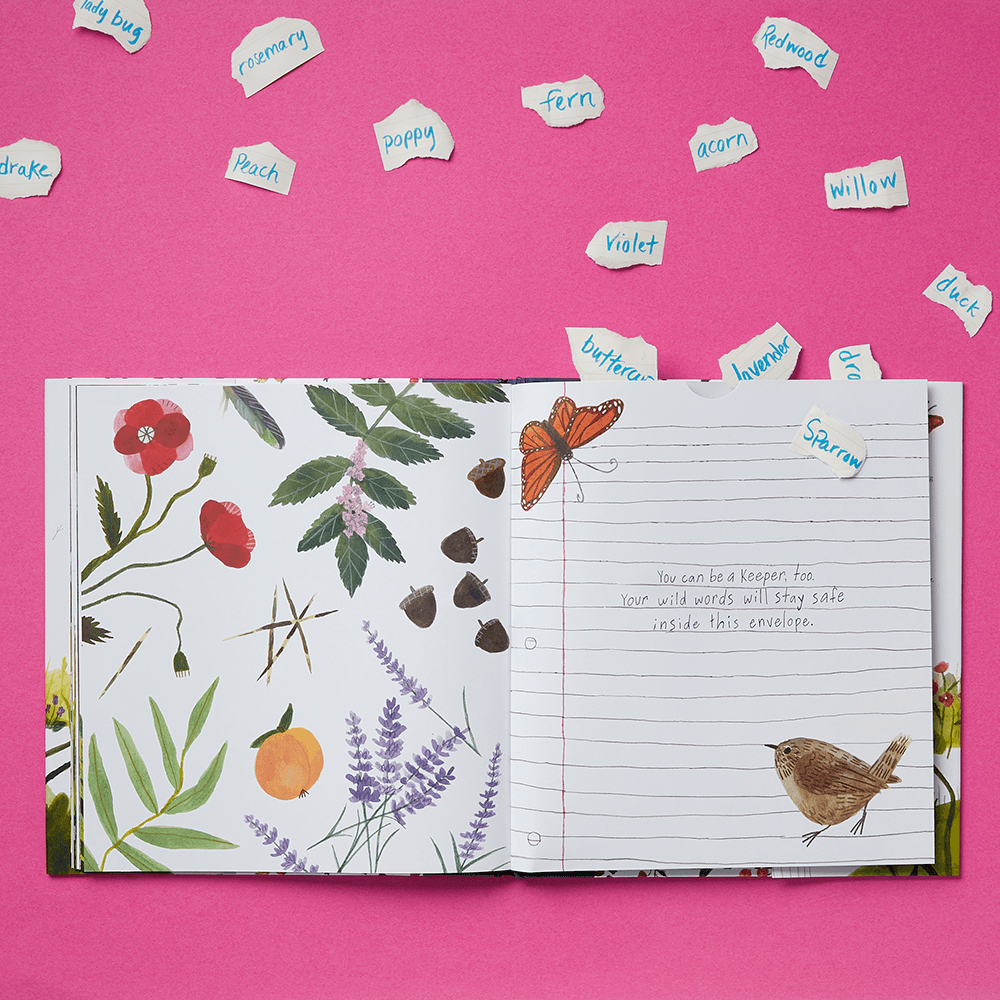 lady bug
rosemary
Redwood
fern
poppy
acorn
drake
Peach
willow
violet
duck
buttercu
lavender
dro
Sparrow
You can be a Keeper, too.
Your wild words will stay safe
inside this envelope.